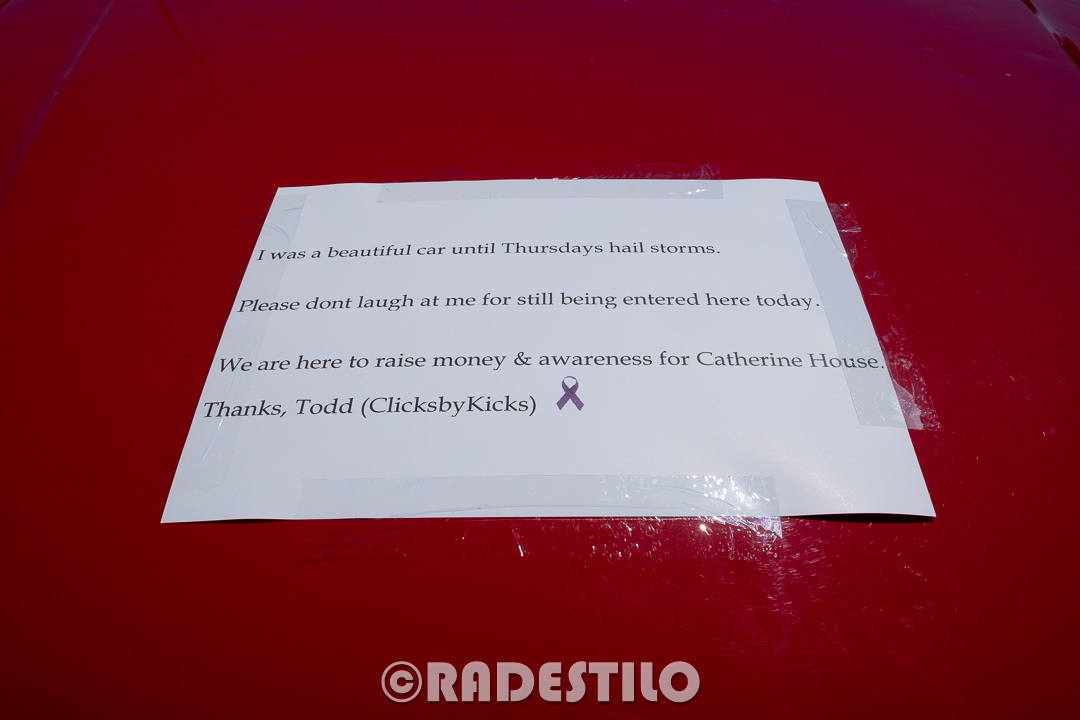 I was a beautiful car until Thursdays hail storms.
Please dont laugh at me for still being entered here today.
We are here to raise money & awareness for Catherine House.
Thanks, Todd (ClicksbyKicks)
©RADESTILO